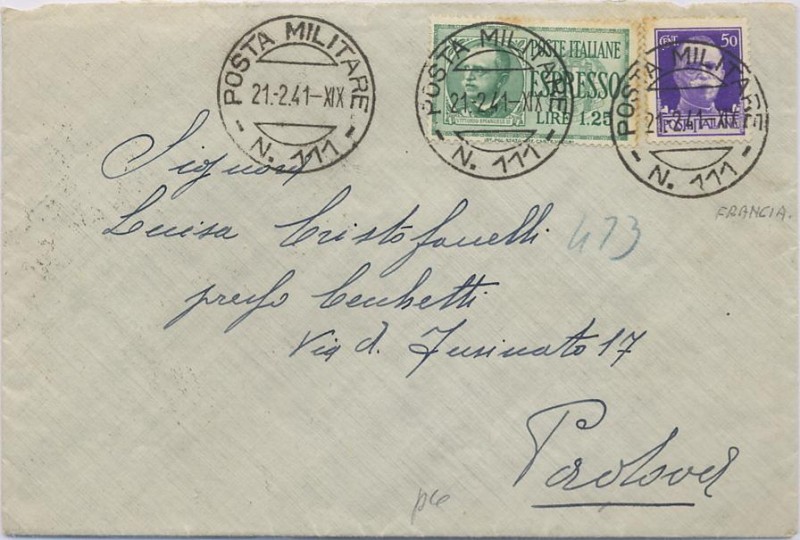 POSTA MILITARE
21-2.41-XIX
N. 111
POSTA MILITARE
21-2.41-XIX
N. 111
POSTE ITALIANE
ESPRESSO
LIRE 1.25
POSTA MILITARE
21-2.41-XIX
N. 111
CENT 50
POSTE ITALIANE
FRANCIA.
Signora
Luisa Cristofanelli
473
presso
Via d. Fusinato 17
Padova